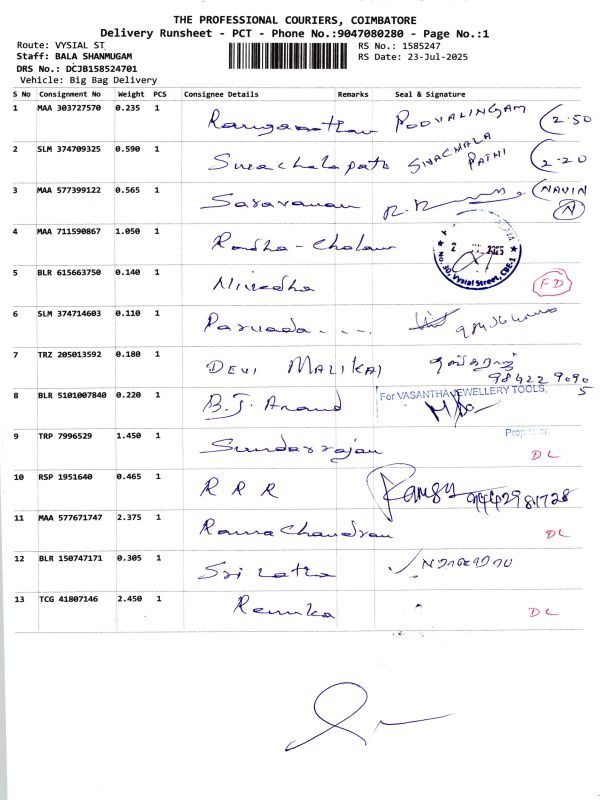 THE PROFESSIONAL COURIERS, COIMBATORE
Delivery Runsheet - PCT - Phone No.:9047080280 - Page No.:1
Route: VYSIAL ST
Staff: BALA SHANMUGAM
DRS No.: DCJB158524701
Vehicle: Big Bag Delivery
RS No.: 1585247
RS Date: 23-Jul-2025
S No Consignment No Weight PCS Consignee Details Remarks Seal & Signature
1 MAA 303727570 0.235 1 Ranganathan POOVALINGAM 2.50
2 SLM 374709325 0.590 1 Sivachalapati SIVACHALA PATHI 2.20
3 MAA 577399122 0.565 1 Saravanan NAVIN N
4 MAA 711590867 1.050 1 Radha-Chalam 2 2025 No. 30, Vysial Street, CBE-1
5 BLR 615663750 0.140 1 Nivedha FD
6 SLM 374714603 0.110 1
7 TRZ 205013592 0.180 1 DEVI MALIKAI 98422 9090 5
8 BLR 5101007840 0.220 1 B.J. Anand For VASANTHA JEWELLERY TOOLS,
Proprietor
9 TRP 7996529 1.450 1 Sundarrajan DL
10 RSP 1951640 0.465 1 R R R
11 MAA 577671747 2.375 1 Rama Chandran DL
12 BLR 150747171 0.305 1 Sri Latha
13 TCG 41807146 2.450 1 Renuka DL